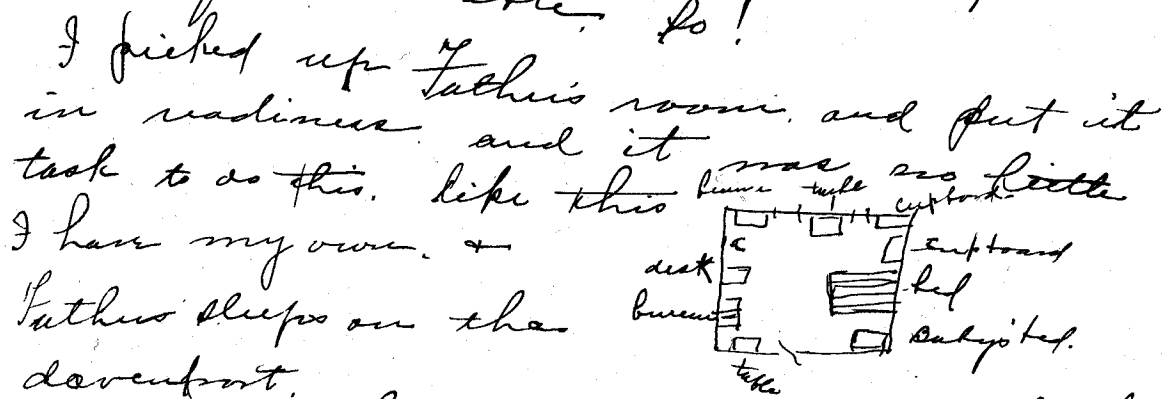 So!
I picked up Father's room and put it
in readiness and it was no little
task to do this. like this
I have my own. +
Father sleeps on the
davenport.
bureau table cupboard
desk cupboard
bureau bed
Baby's bed.
table